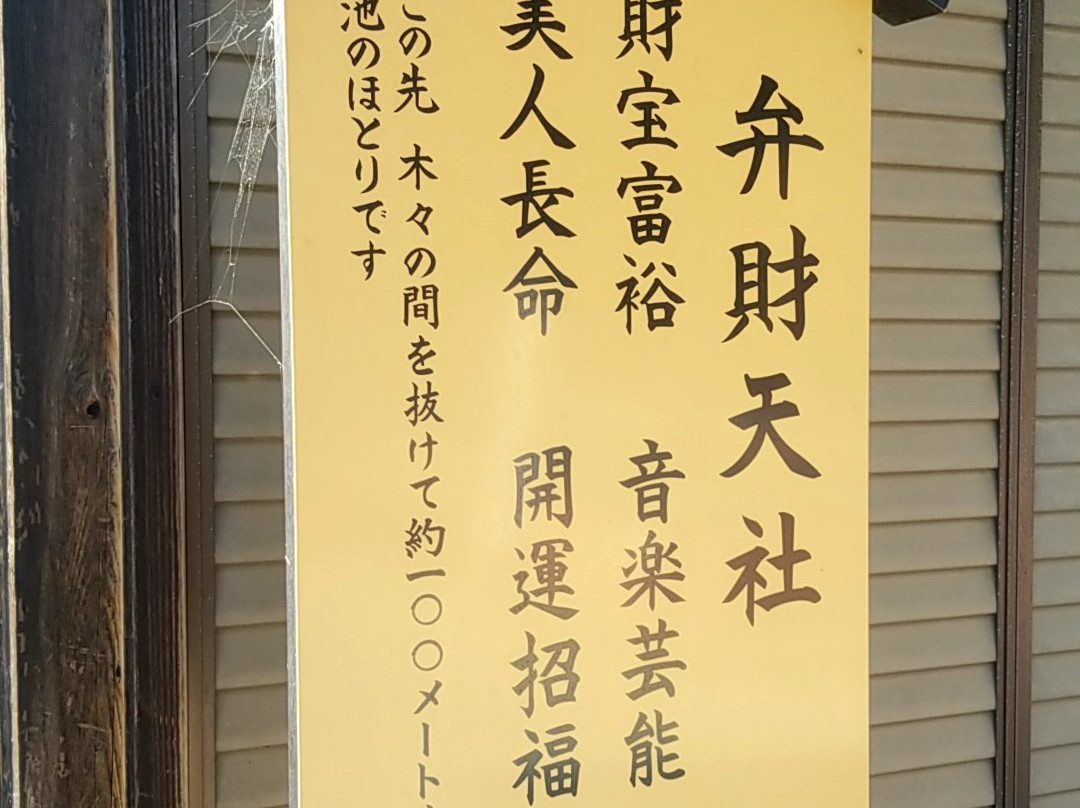 弁財天社
財宝富裕 音楽芸能
美人長命 開運招福
この先 木々の間を抜けて約一〇〇メート
池のほとりです